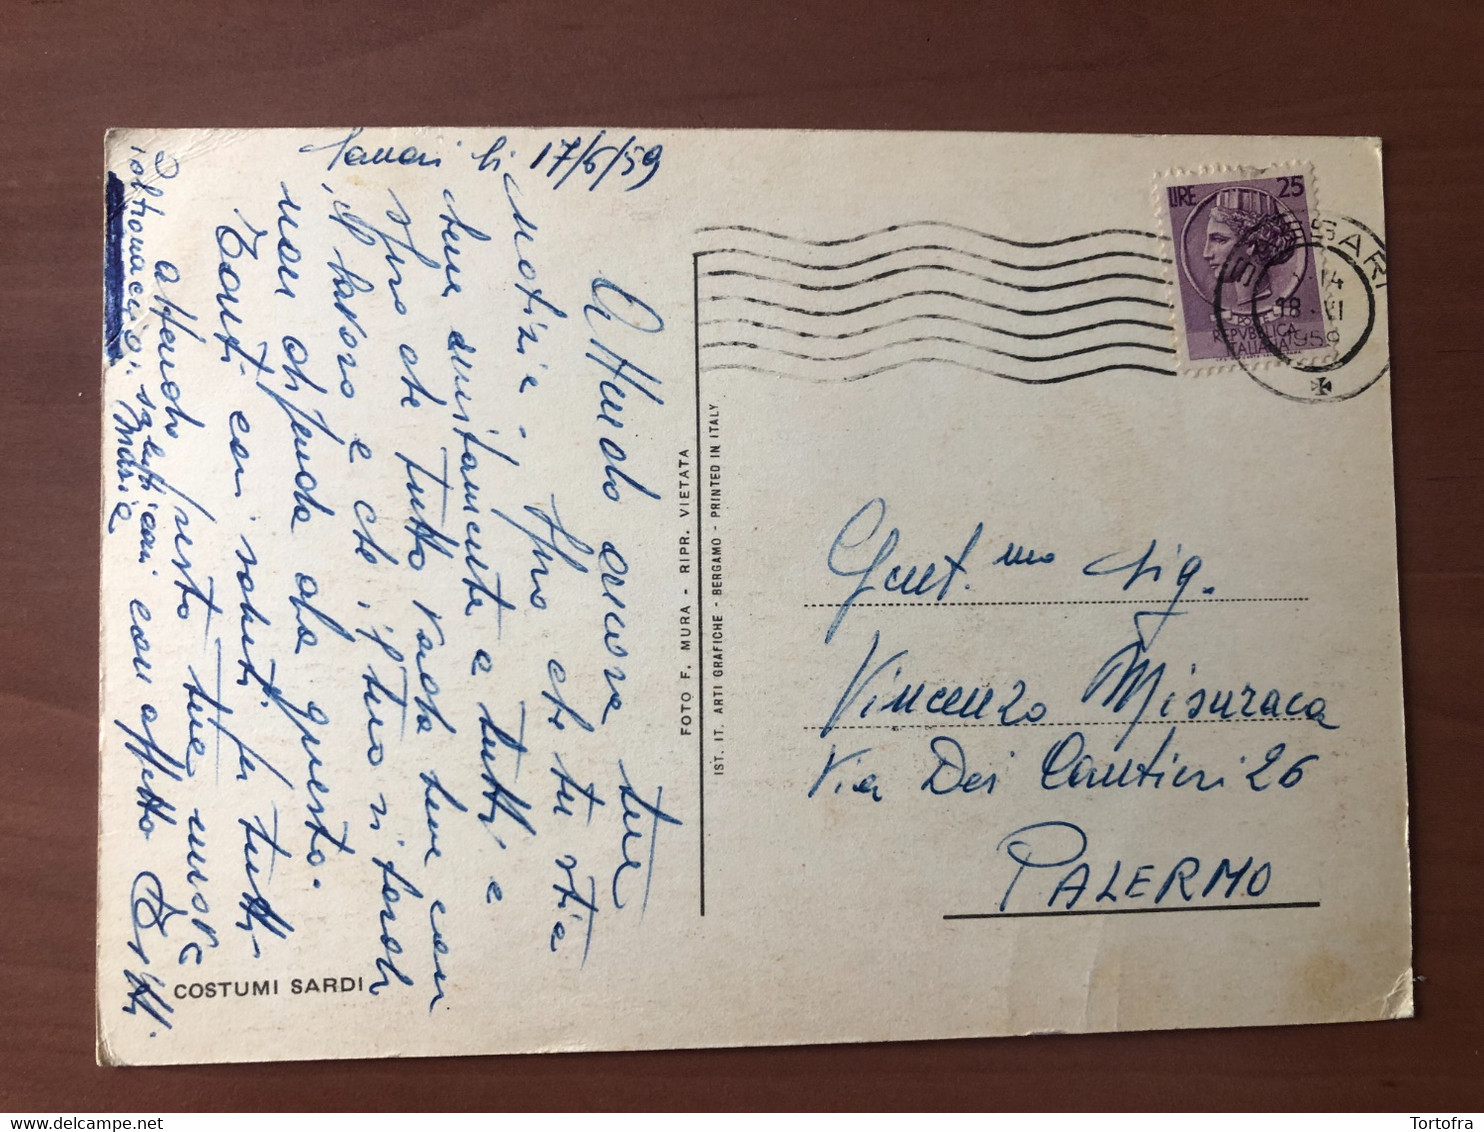 Sassari li 17/6/59
Attendo ancora tue
notizie. Spero che tu stia
bene unitamente a tutti e
spero che tutto vada bene con
il lavoro e che il tuo
non dipenda da questo.
Tanti cari saluti per tutti
attendo presto tue nuove
saluti cari con affetto
Maria
COSTUMI SARDI
FOTO F. MURA - RIPR. VIETATA
IST. IT. ARTI GRAFICHE - BERGAMO - PRINTED IN ITALY
LIRE 25
REPVBBLICA
ITALIANA
SASSARI
18 VI
1959
Gent.mo Sig.
Vincenzo Misuraca
Via Dei Cantieri 26
PALERMO
Tortofra